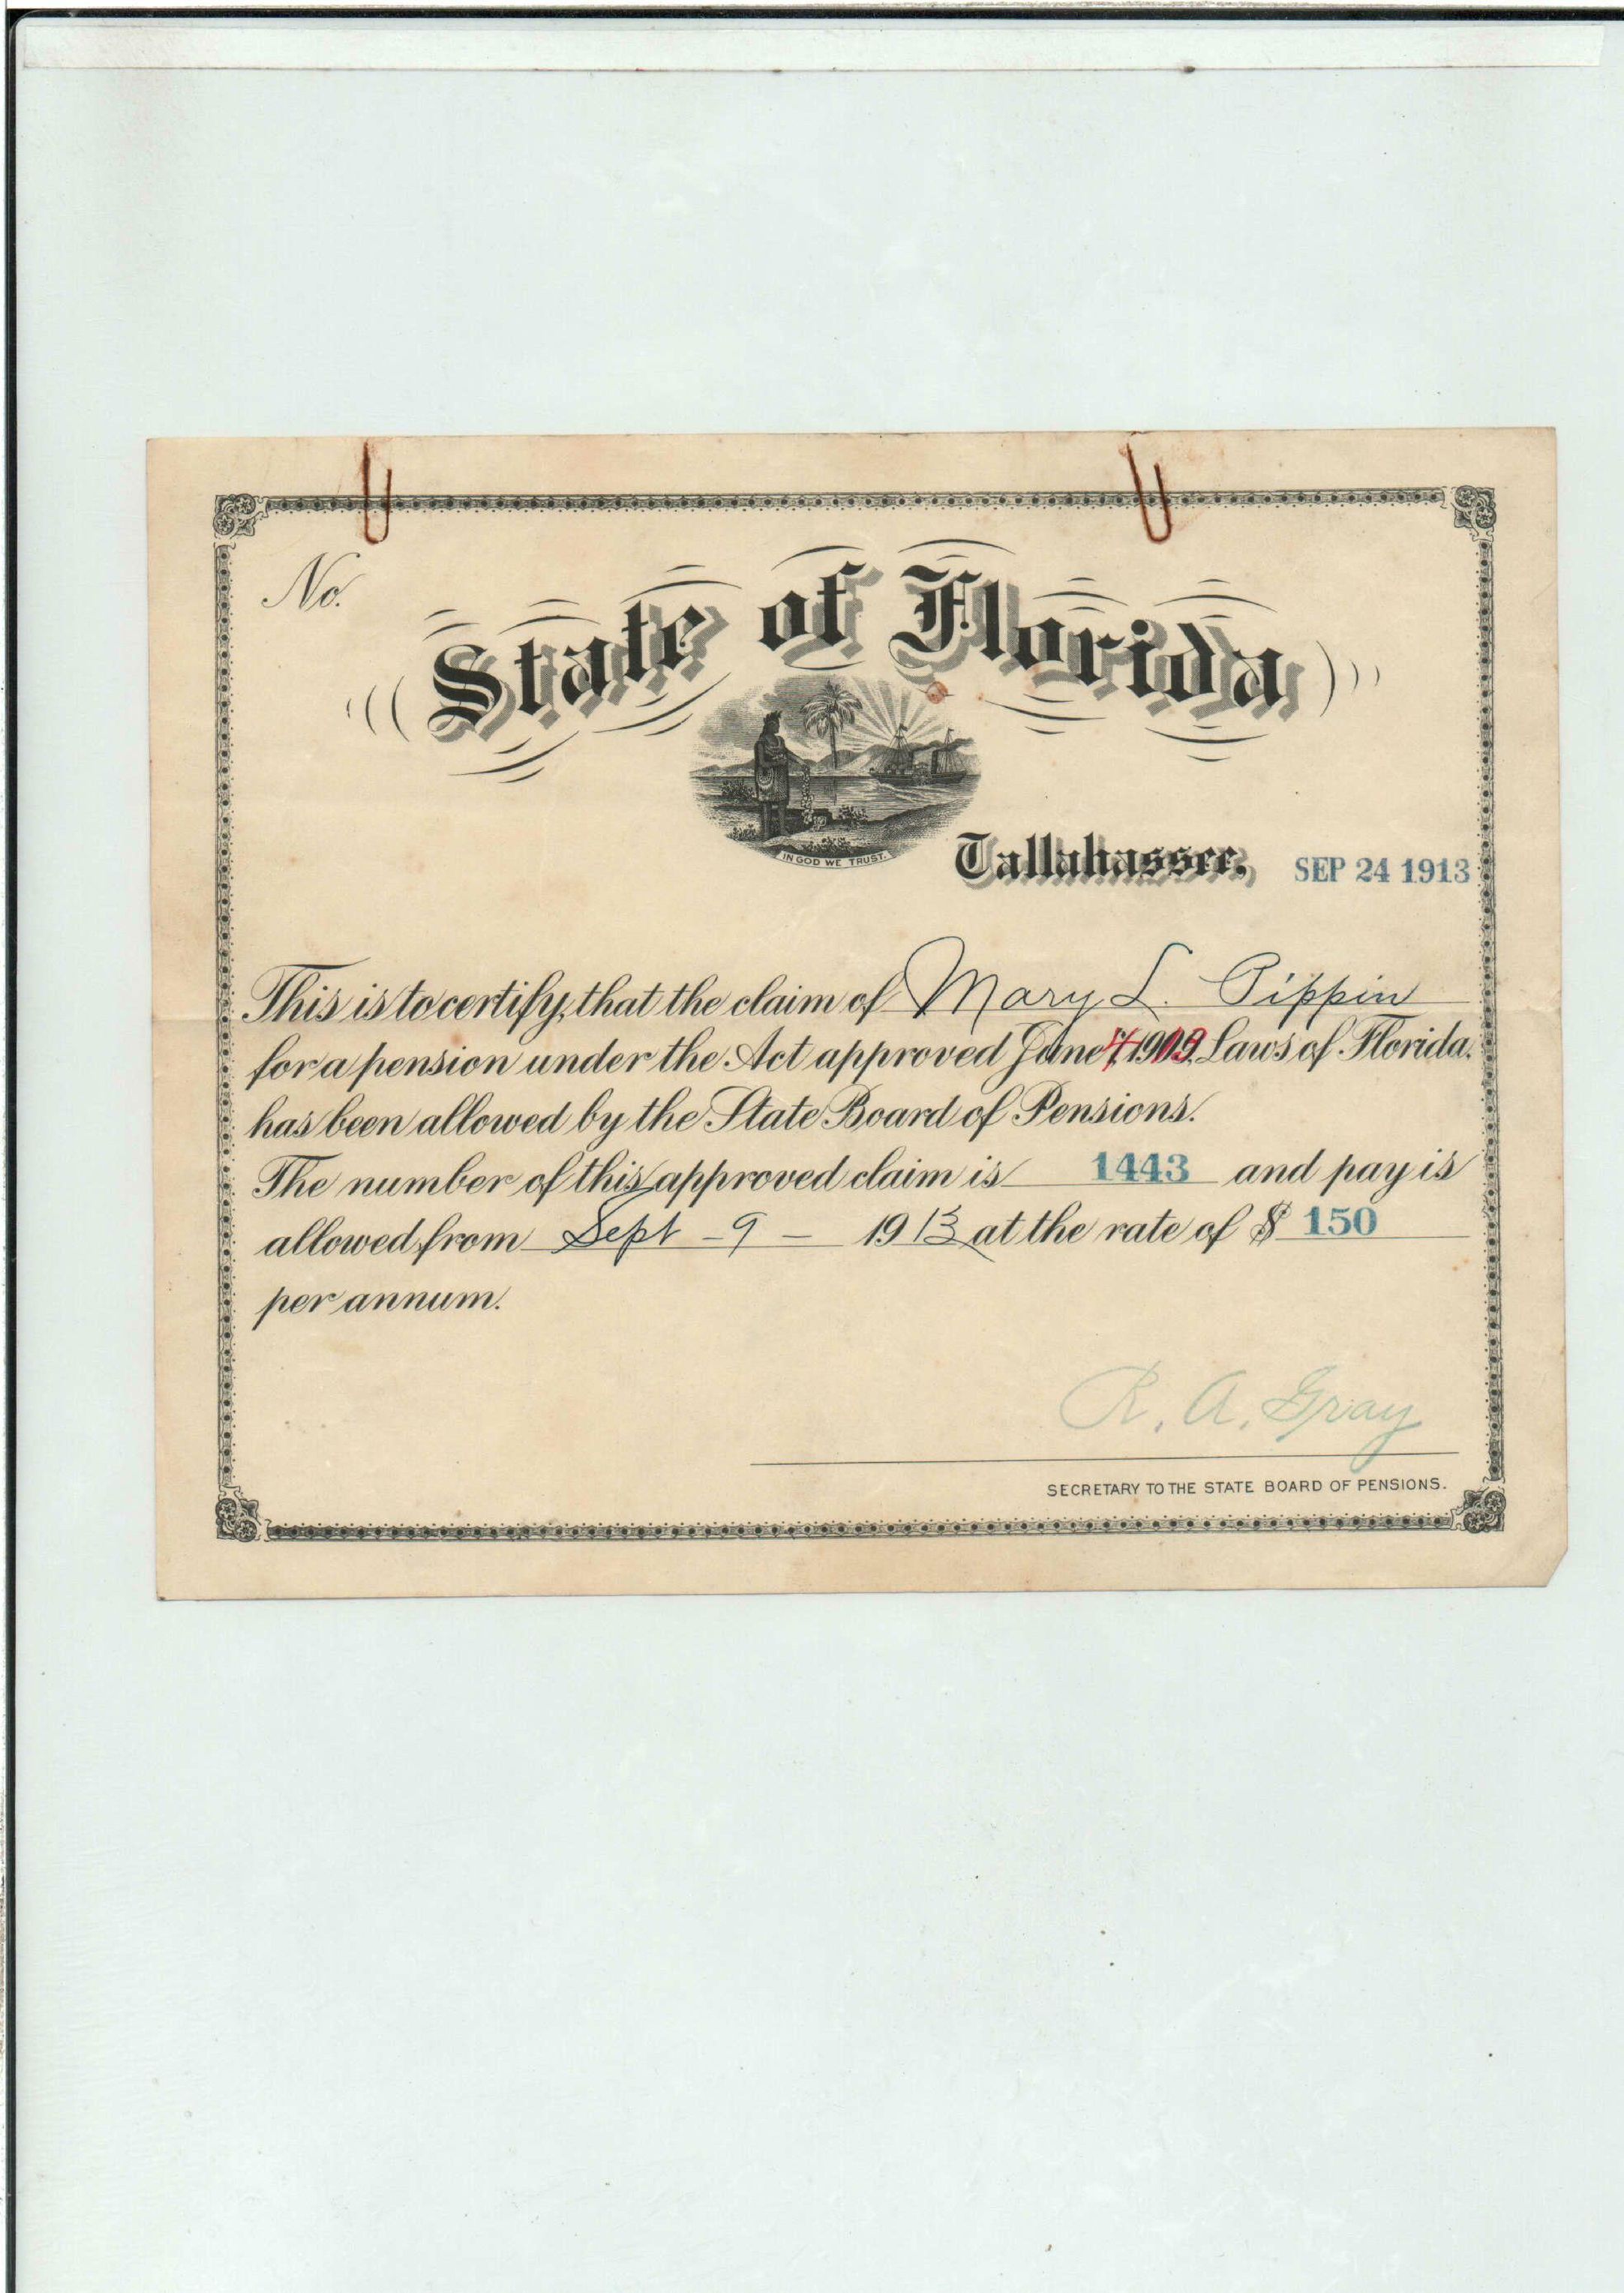 No.
State of Florida
IN GOD WE TRUST.
Tallahassee, SEP 24 1913
This is to certify, that the claim of Mary L. Pippin
for a pension under the Act approved June Laws of Florida,
has been allowed by the State Board of Pensions.
The number of this approved claim is 1443 and pay is
allowed from Sept - 9 - 1913 at the rate of $ 150
per annum.
R. A. Gray
SECRETARY TO THE STATE BOARD OF PENSIONS.